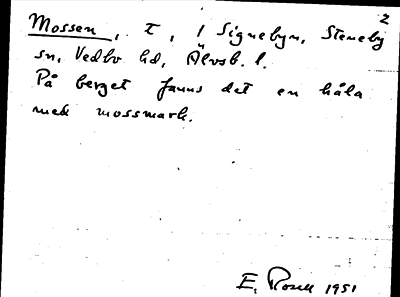 2
Mossen, t, 1 Signebyn, Steneby
sn, Vedbo hd, Älvsb. l.
På berget fanns det en håla
med mossmark.
E. Rosell 1951